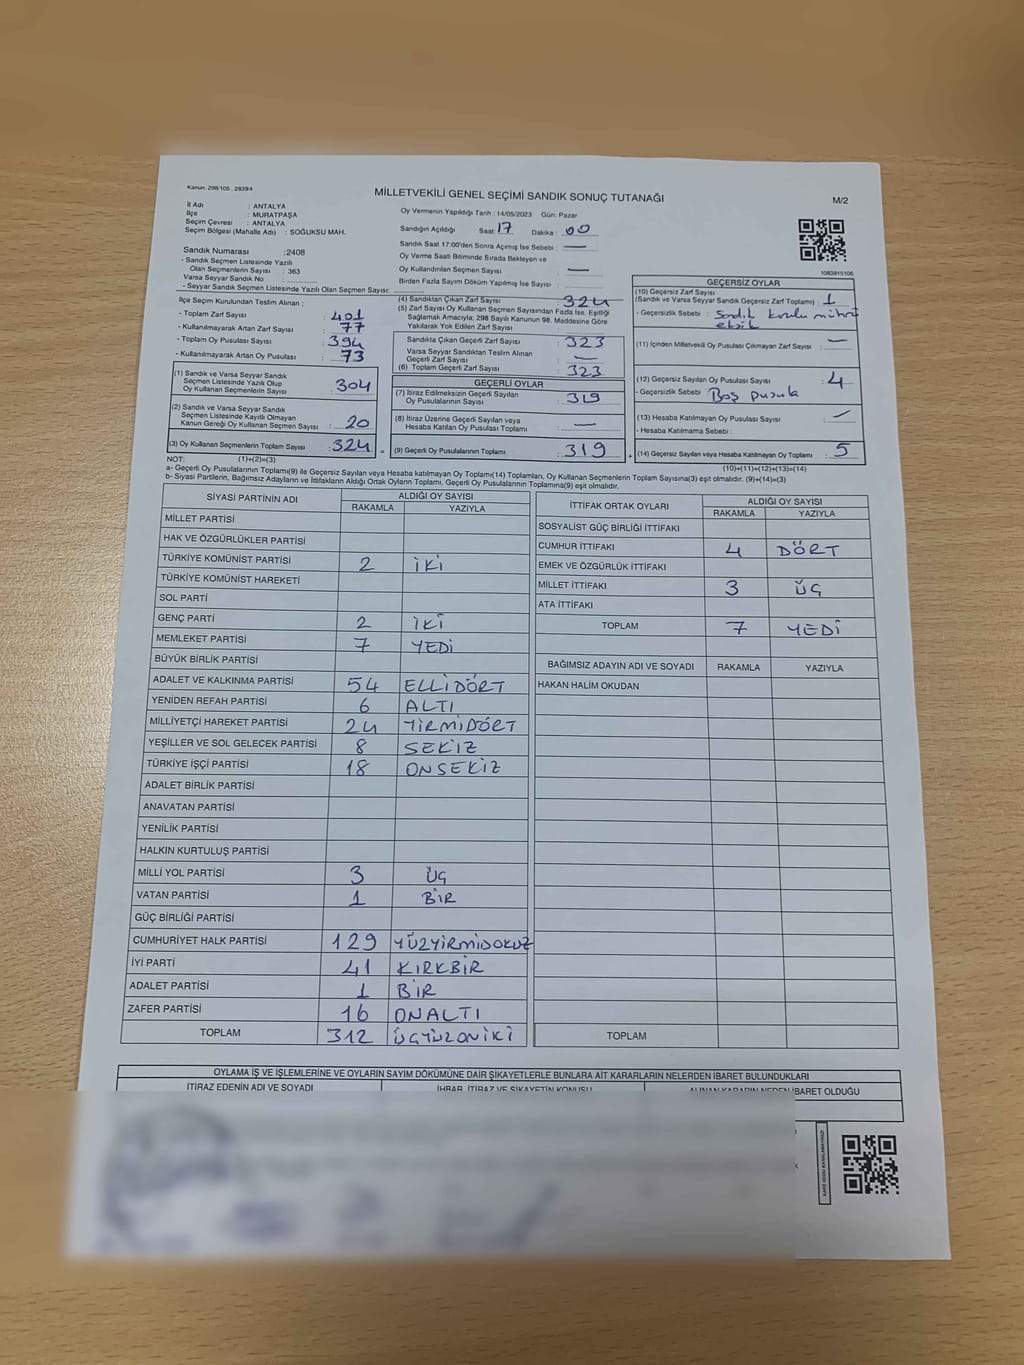 Kanun: 298/105 , 2839/4
MİLLETVEKİLİ GENEL SEÇİMİ SANDIK SONUÇ TUTANAĞI
M/2
İl Adı : ANTALYA
İlçe : MURATPAŞA
Seçim Çevresi : ANTALYA
Seçim Bölgesi (Mahalle Adı) : SOĞUKSU MAH.
Sandık Numarası :2408
- Sandık Seçmen Listesinde Yazılı
Olan Seçmenlerin Sayısı : 363
Varsa Seyyar Sandık No :
- Seyyar Sandık Seçmen Listesinde Yazılı Olan Seçmen Sayısı:
Oy Vermenin Yapıldığı Tarih : 14/05/2023 Gün: Pazar
Sandığın Açıldığı Saat : 17 Dakika : 00
Sandık Saat 17.00'den Sonra Açımış İse Sebebi : —
Oy Verme Saati Bitiminde Sırada Bekleyen ve
Oy Kullandırılan Seçmen Sayısı : —
Birden Fazla Sayım Döküm Yapılmış İse Sayısı :
1083815106
İlçe Seçim Kurulundan Teslim Alınan ;
- Toplam Zarf Sayısı : 401
- Kullanılmayarak Artan Zarf Sayısı : 77
- Toplam Oy Pusulası Sayısı : 394
- Kullanılmayarak Artan Oy Pusulası : 73
(1) Sandık ve Varsa Seyyar Sandık
Seçmen Listesinde Yazılı Olup
Oy Kullanan Seçmenlerin Sayısı : 304
(2) Sandık ve Varsa Seyyar Sandık
Seçmen Listesinde Kayıtlı Olmayan
Kanun Gereği Oy Kullanan Seçmen Sayısı : 20
(3) Oy Kullanan Seçmenlerin Toplam Sayısı : 324
(4) Sandıktan Çıkan Zarf Sayısı : 324
(5) Zarf Sayısı Oy Kullanan Seçmen Sayısından Fazla İse, Eşitliği
Sağlamak Amacıyla; 298 Sayılı Kanunun 98. Maddesine Göre
Yakılarak Yok Edilen Zarf Sayısı :
Sandıkta Çıkan Geçerli Zarf Sayısı : 323
Varsa Seyyar Sandıktan Teslim Alınan
Geçerli Zarf Sayısı : —
(6) Toplam Geçerli Zarf Sayısı : 323
GEÇERLİ OYLAR
(7) İtiraz Edilmeksizin Geçerli Sayılan
Oy Pusulalarının Sayısı : 319
(8) İtiraz Üzerine Geçerli Sayılan veya
Hesaba Katılan Oy Pusulası Toplamı : —
= (9) Geçerli Oy Pusulalarının Toplamı : 319
GEÇERSİZ OYLAR
(10) Geçersiz Zarf Sayısı
(Sandık ve Varsa Seyyar Sandık Geçersiz Zarf Toplamı) : 1
- Geçersizlik Sebebi : Sandık kurulu mührü
eksik
(11) İçinden Milletvekili Oy Pusulası Çıkmayan Zarf Sayısı : —
(12) Geçersiz Sayılan Oy Pusulası Sayısı : 4
- Geçersizlik Sebebi : Boş pusula
(13) Hesaba Katılmayan Oy Pusulası Sayısı : —
- Hesaba Katılmama Sebebi :
+ (14) Geçersiz Sayılan veya Hesaba Katılmayan Oy Toplamı : 5
NOT: (1)+(2)=(3) (10)+(11)+(12)+(13)=(14)
a- Geçerli Oy Pusulalarının Toplamı(9) ile Geçersiz Sayılan veya Hesaba katılmayan Oy Toplamı(14) Toplamları, Oy Kullanan Seçmenlerin Toplam Sayısına(3) eşit olmalıdır. (9)+(14)=(3)
b- Siyasi Partilerin, Bağımsız Adayların ve İttifakların Aldığı Ortak Oyların Toplamı, Geçerli Oy Pusulalarının Toplamına(9) eşit olmalıdır.
SİYASİ PARTİNİN ADI ALDIĞI OY SAYISI
RAKAMLA YAZIYLA
MİLLET PARTİSİ
HAK VE ÖZGÜRLÜKLER PARTİSİ
TÜRKİYE KOMÜNİST PARTİSİ 2 İKİ
TÜRKİYE KOMÜNİST HAREKETİ
SOL PARTİ
GENÇ PARTİ 2 İKİ
MEMLEKET PARTİSİ 7 YEDİ
BÜYÜK BİRLİK PARTİSİ
ADALET VE KALKINMA PARTİSİ 54 ELLİDÖRT
YENİDEN REFAH PARTİSİ 6 ALTI
MİLLİYETÇİ HAREKET PARTİSİ 24 YİRMİDÖRT
YEŞİLLER VE SOL GELECEK PARTİSİ 8 SEKİZ
TÜRKİYE İŞÇİ PARTİSİ 18 ONSEKİZ
ADALET BİRLİK PARTİSİ
ANAVATAN PARTİSİ
YENİLİK PARTİSİ
HALKIN KURTULUŞ PARTİSİ
MİLLİ YOL PARTİSİ 3 ÜÇ
VATAN PARTİSİ 1 BİR
GÜÇ BİRLİĞİ PARTİSİ
CUMHURİYET HALK PARTİSİ 129 YÜZYİRMİDOKUZ
İYİ PARTİ 41 KIRKBİR
ADALET PARTİSİ 1 BİR
ZAFER PARTİSİ 16 ONALTI
TOPLAM 312 ÜÇYÜZONİKİ
İTTİFAK ORTAK OYLARI ALDIĞI OY SAYISI
RAKAMLA YAZIYLA
SOSYALİST GÜÇ BİRLİĞİ İTTİFAKI
CUMHUR İTTİFAKI 4 DÖRT
EMEK VE ÖZGÜRLÜK İTTİFAKI
MİLLET İTTİFAKI 3 ÜÇ
ATA İTTİFAKI
TOPLAM 7 YEDİ
BAĞIMSIZ ADAYIN ADI VE SOYADI RAKAMLA YAZIYLA
HAKAN HALİM OKUDAN
TOPLAM
OYLAMA İŞ VE İŞLEMLERİNE VE OYLARIN SAYIM DÖKÜMÜNE DAİR ŞİKAYETLERLE BUNLARA AİT KARARLARIN NELERDEN İBARET BULUNDUKLARI
İTİRAZ EDENİN ADI VE SOYADI İHBAR, İTİRAZ VE ŞİKAYETİN KONUSU ALINAN KARARIN NEDEN İBARET OLDUĞU